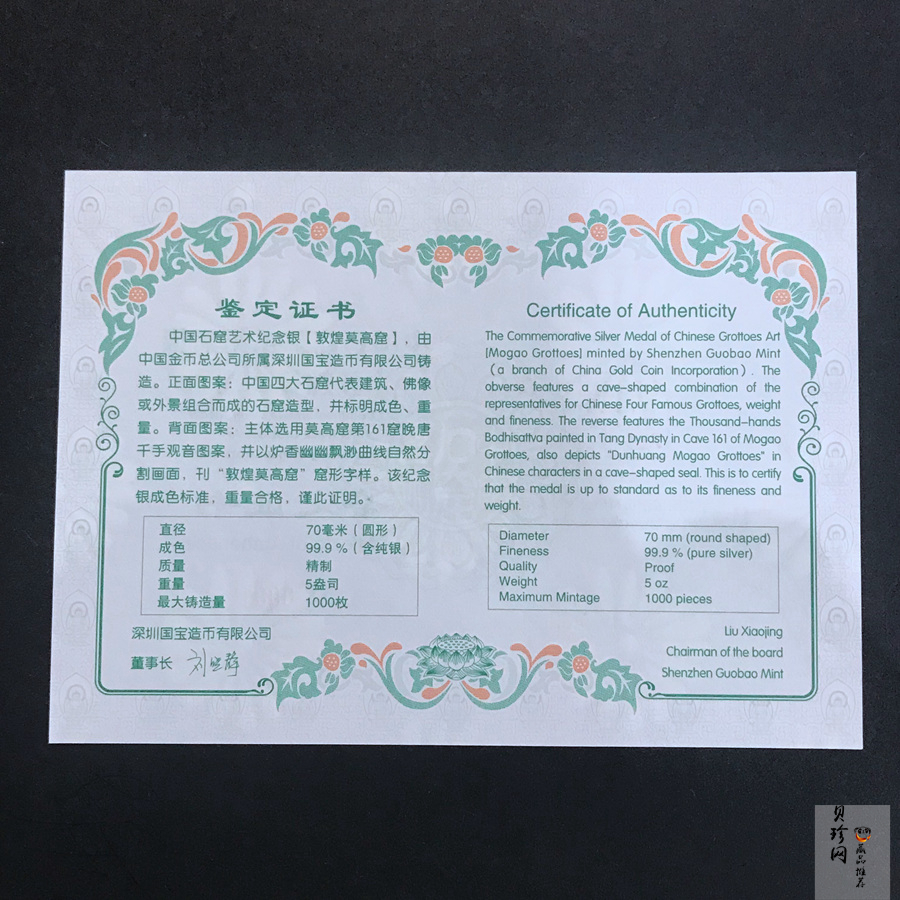 鉴定证书
中国石窟艺术纪念银【敦煌莫高窟】，由
中国金币总公司所属深圳国宝造币有限公司铸
造。正面图案：中国四大石窟代表建筑、佛像
或外景组合而成的石窟造型，并标明成色、重
量。背面图案：主体选用莫高窟第161窟晚唐
千手观音图案，并以炉香幽幽飘渺曲线自然分
割画面，刊“敦煌莫高窟”窟形字样。该纪念
银成色标准，重量合格，谨此证明。
直径 70毫米（圆形）
成色 99.9 %（含纯银）
质量 精制
重量 5盎司
最大铸造量 1000枚
深圳国宝造币有限公司
董事长
Certificate of Authenticity
The Commemorative Silver Medal of Chinese Grottoes Art
[Mogao Grottoes] minted by Shenzhen Guobao Mint
(a branch of China Gold Coin Incorporation). The
obverse features a cave-shaped combination of the
representatives for Chinese Four Famous Grottoes, weight
and fineness. The reverse features the Thousand-hands
Bodhisattva painted in Tang Dynasty in Cave 161 of Mogao
Grottoes, also depicts "Dunhuang Mogao Grottoes" in
Chinese characters in a cave-shaped seal. This is to certify
that the medal is up to standard as to its fineness and
weight.
Diameter 70 mm (round shaped)
Fineness 99.9 % (pure silver)
Quality Proof
Weight 5 oz
Maximum Mintage 1000 pieces
Liu Xiaojing
Chairman of the board
Shenzhen Guobao Mint
贝珍网
藏品推荐